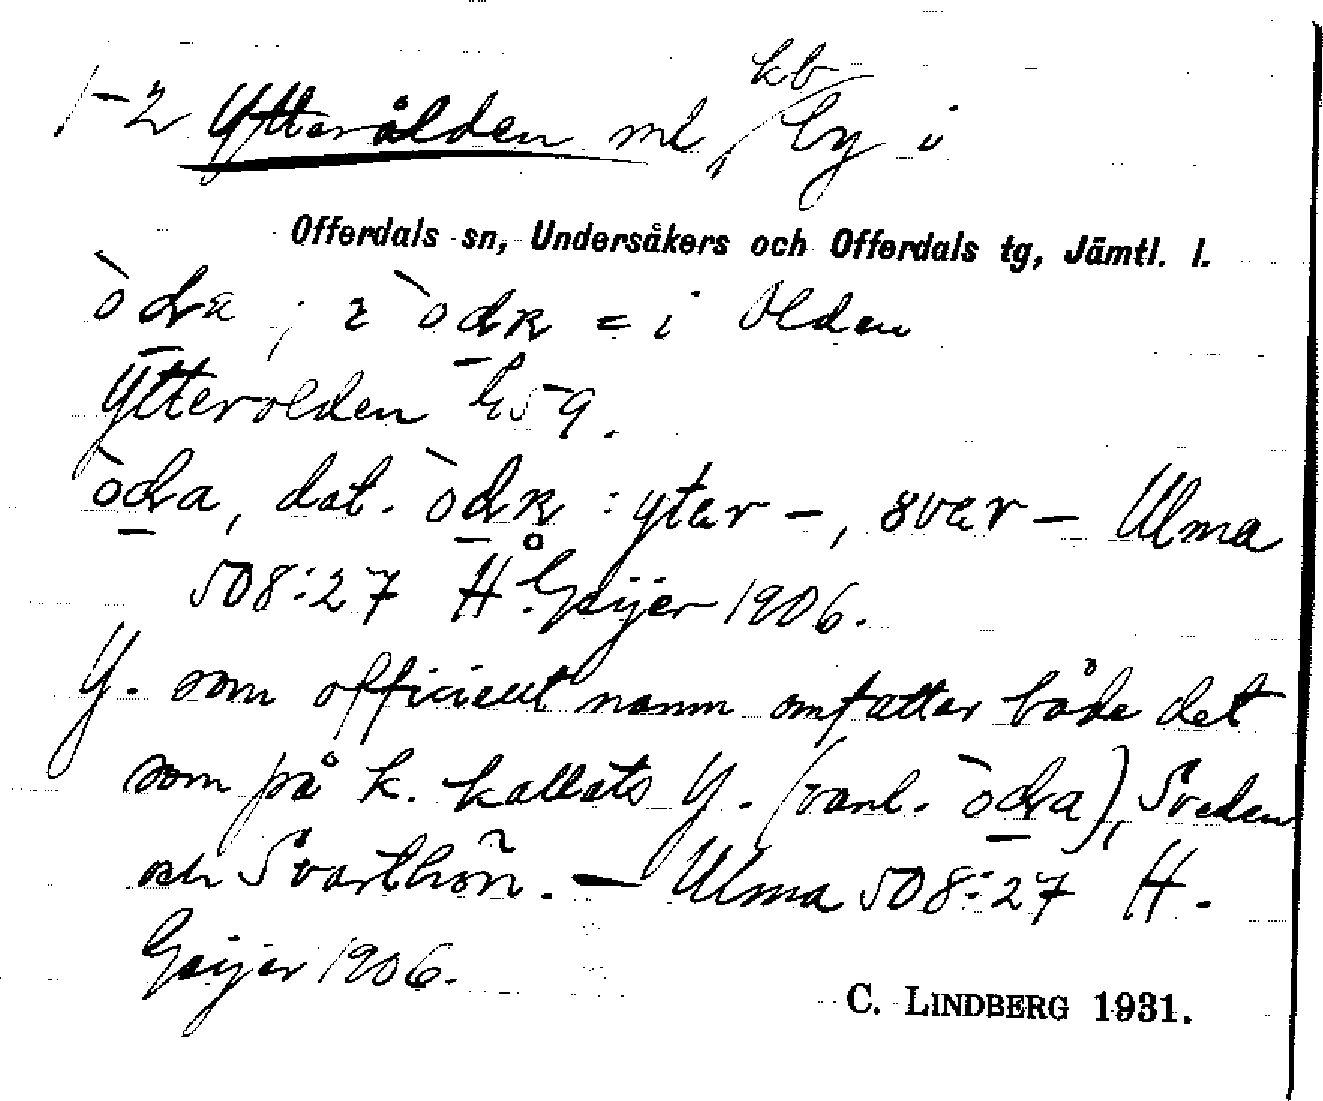 1-2 Ytterålden ml, kb by i
Offerdals sn, Undersåkers och Offerdals tg, Jämtl. l.
òdra ; i òdn = i Olden
Ytterolden E59.
òdra, dat. òdn : ytar -, svar - Ulma
508:27 H. Geijer 1906.
Y. som officiellt namn omfattar både det
som på k. kallats Y. (vanl. òdra), Sveden
och Svarthön. - Ulma 508:27 H.
Geijer 1906.
C. LINDBERG 1931.